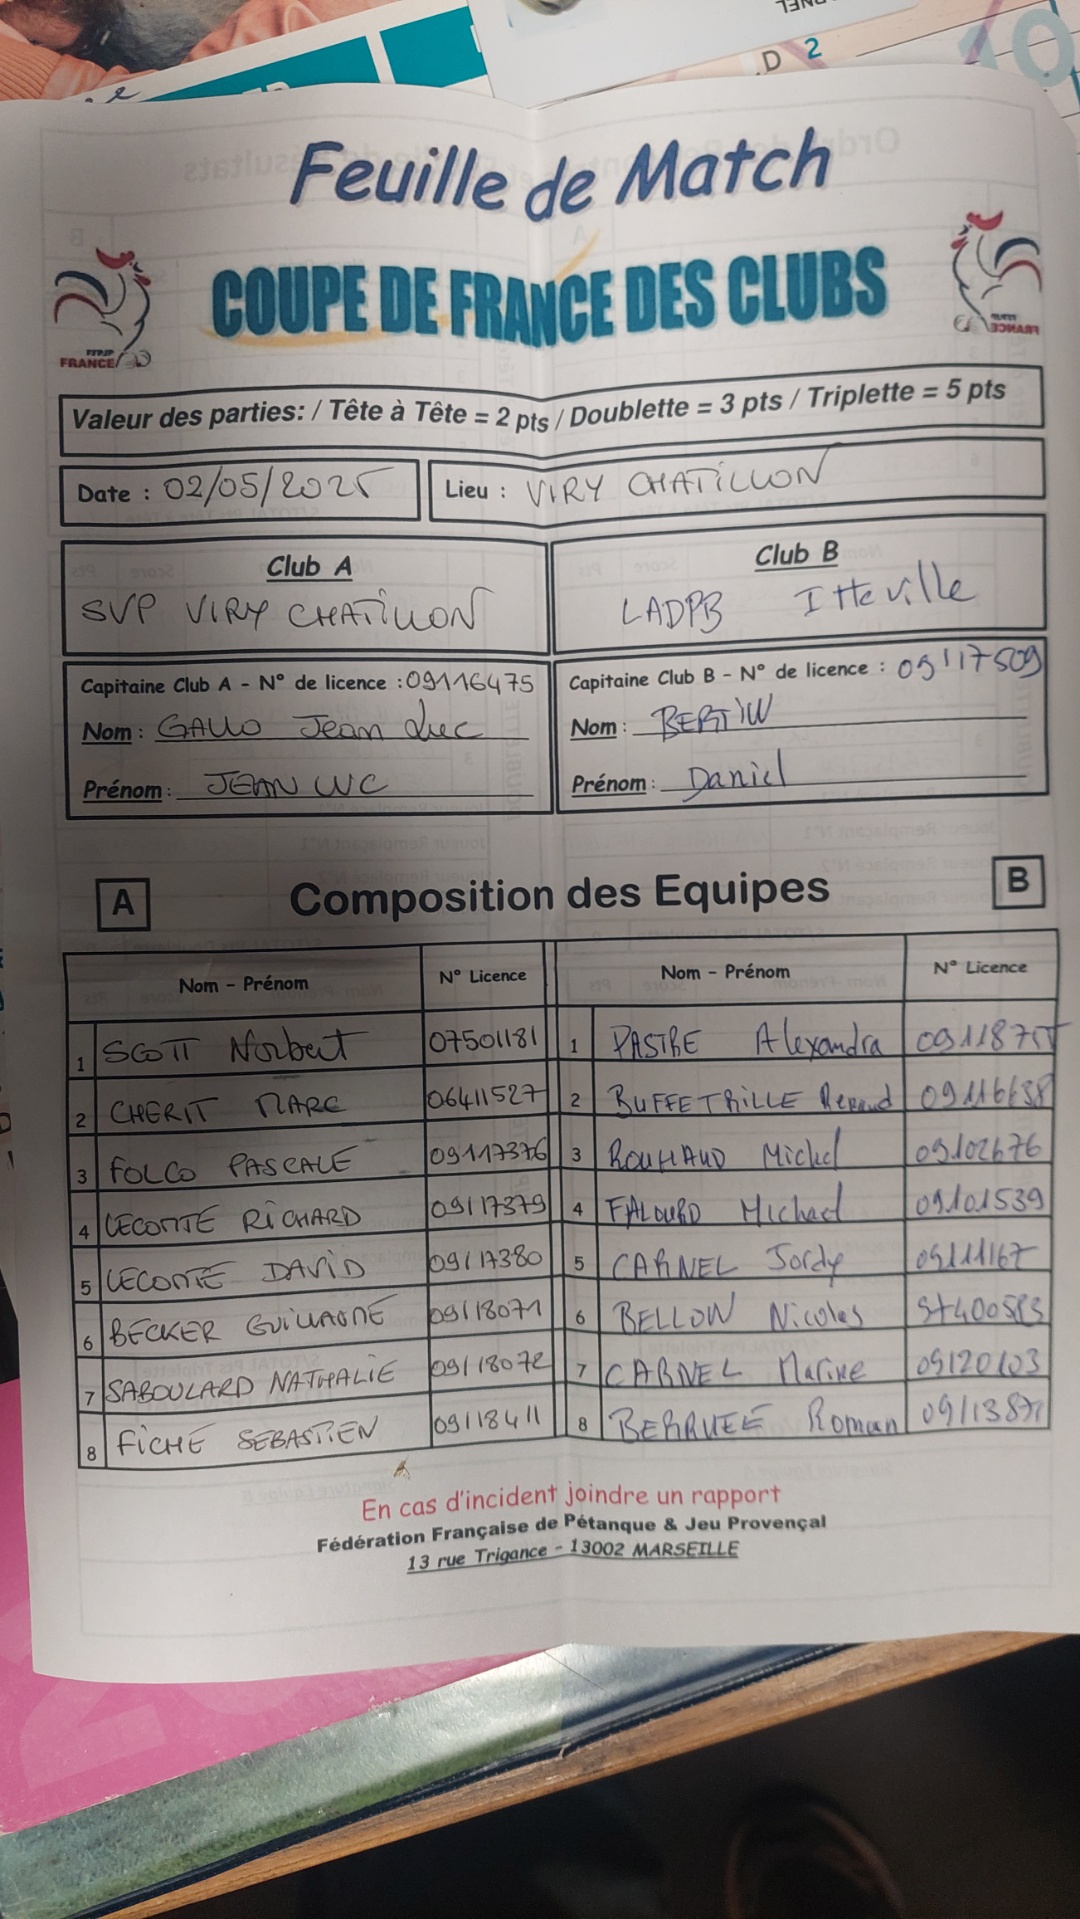 D 2
10
Feuille de Match
COUPE DE FRANCE DES CLUBS
FFPJP
FRANCE
FRANCE
Valeur des parties: / Tête à Tête = 2 pts / Doublette = 3 pts / Triplette = 5 pts
Date : 02/05/2025
Lieu : VIRY CHATILLON
Club A
SVP VIRY CHATILLON
Club B
LADPB Itteville
Capitaine Club A - N° de licence : 09116475
Nom : GALLO Jean Luc
Prénom : JEAN LUC
Capitaine Club B - N° de licence : 09117509
Nom : BERTIN
Prénom : Daniel
A Composition des Equipes B
Nom - Prénom N° Licence Nom - Prénom N° Licence
1 SCOTT Norbert 07501181 1 PASTRE Alexandra
2 CHERIT MARC 06411527 2 BUFFETRILLE Renaud 09116638
3 FOLCO PASCALE 09117376 3 ROUHAUD Michel 09102676
4 LECOMTE RICHARD 09117379 4 FALOURD Michael 09101539
5 LECOMTE DAVID 09117380 5 CARNEL Jordy 09111167
6 BECKER GUILLAUME 09118071 6 BELLOW Nicolas
7 SABOULARD NATHALIE 09118072 7 CARNEL Marine 09120103
8 FICHE SEBASTIEN 09118411 8 BERRUEE Roman
En cas d'incident joindre un rapport
Fédération Française de Pétanque & Jeu Provençal
13 rue Trigance - 13002 MARSEILLE